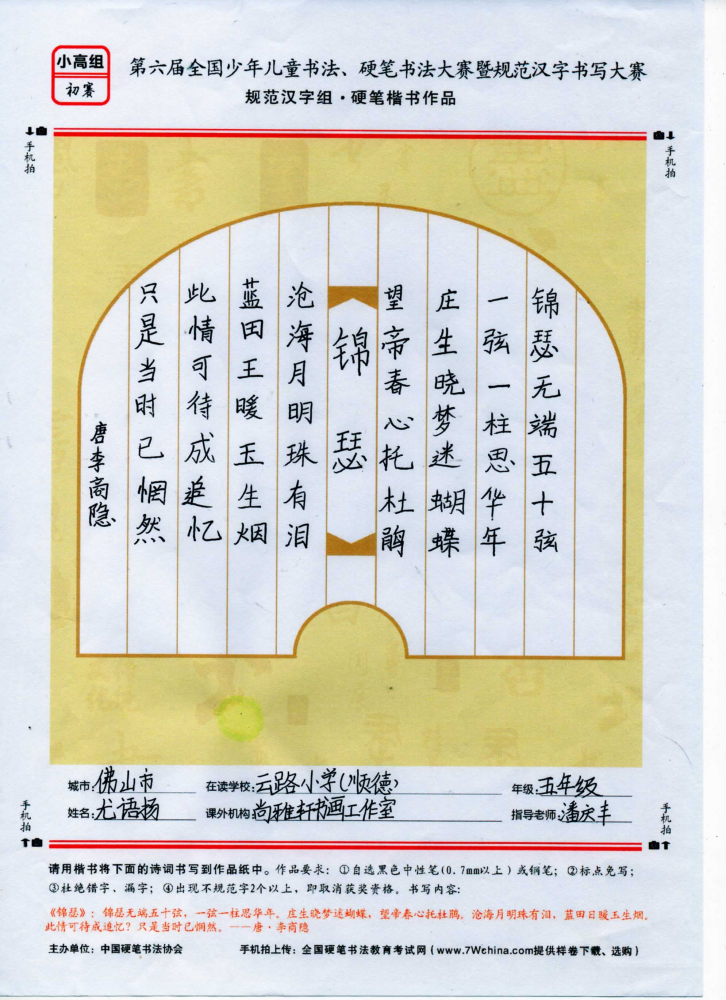 小高组
初赛
第六届全国少年儿童书法、硬笔书法大赛暨规范汉字书写大赛
规范汉字组·硬笔楷书作品
手机拍
手机拍
锦瑟无端五十弦
一弦一柱思华年
庄生晓梦迷蝴蝶
望帝春心托杜鹃
锦瑟
沧海月明珠有泪
蓝田王暖玉生烟
此情可待成追忆
只是当时已惘然
唐李商隐
城市:佛山市 在读学校:云路小学(顺德) 年级:五年级
姓名:尤语扬 课外机构:尚雅轩书画工作室 指导老师:潘庆丰
手机拍
手机拍
请用楷书将下面的诗词书写到作品纸中。作品要求：①自选黑色中性笔(0.7mm以上)或钢笔；②标点免写；
③杜绝错字、漏字；④出现不规范字2个以上，即取消获奖资格。书写内容：
《锦瑟》：锦瑟无端五十弦，一弦一柱思华年。庄生晓梦迷蝴蝶，望帝春心托杜鹃。沧海月明珠有泪，蓝田日暖玉生烟。
此情可待成追忆？只是当时已惘然。——唐·李商隐
主办单位：中国硬笔书法协会 手机拍上传：全国硬笔书法教育考试网(www.7Wchina.com提供样卷下载、选购)